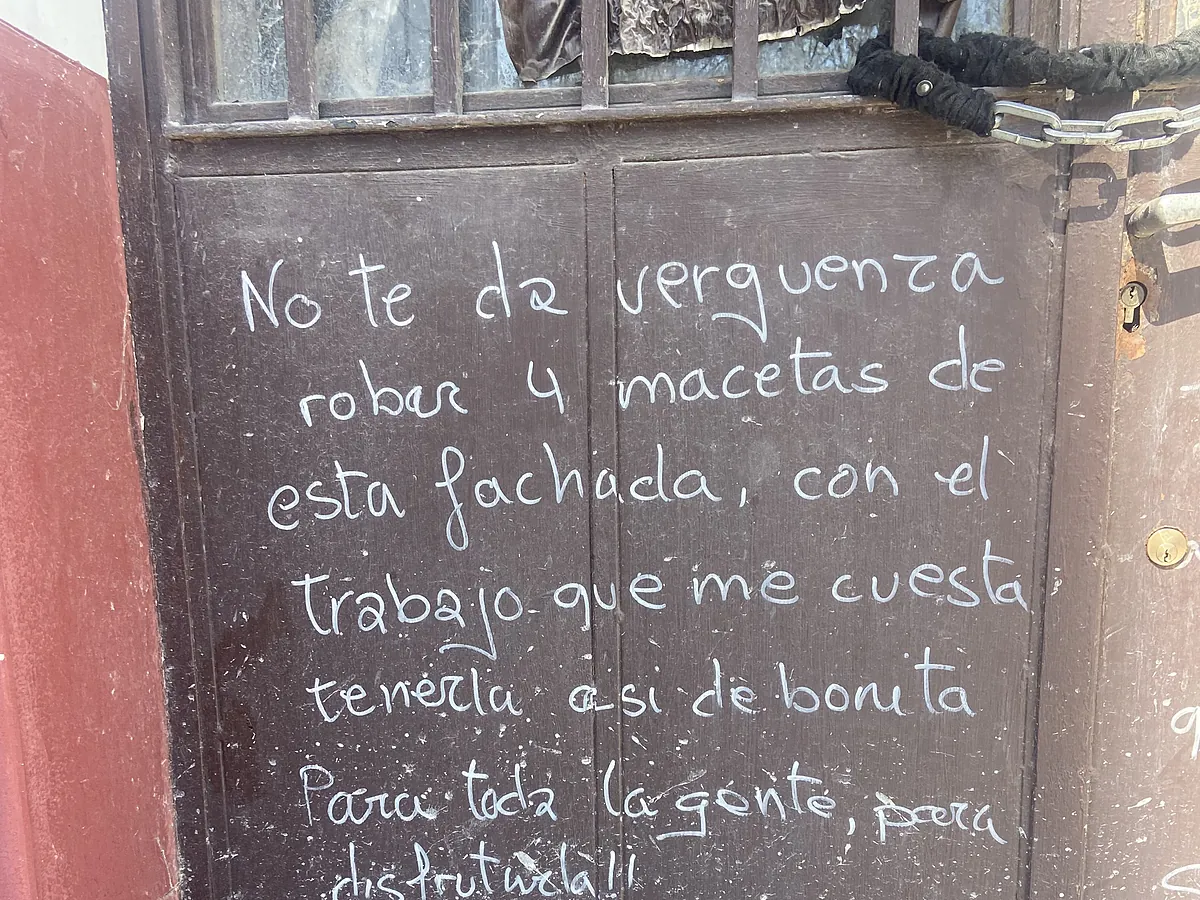 No te da verguenza
robar 4 macetas de
esta fachada, con el
trabajo que me cuesta
tenerla asi de bonita
Para toda la gente, para
disfrutarla!!